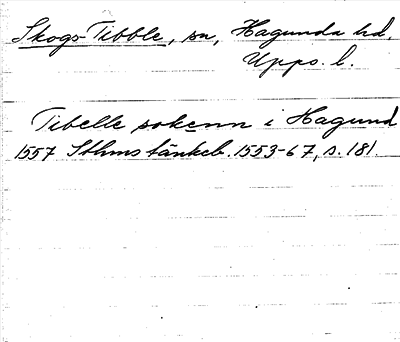 Skogs-Tibble, sn, Hagunda hd.
Upps. l.
Tibelle sokenn i Hagund
1557 Sthms tänkeb. 1553-67, s. 181